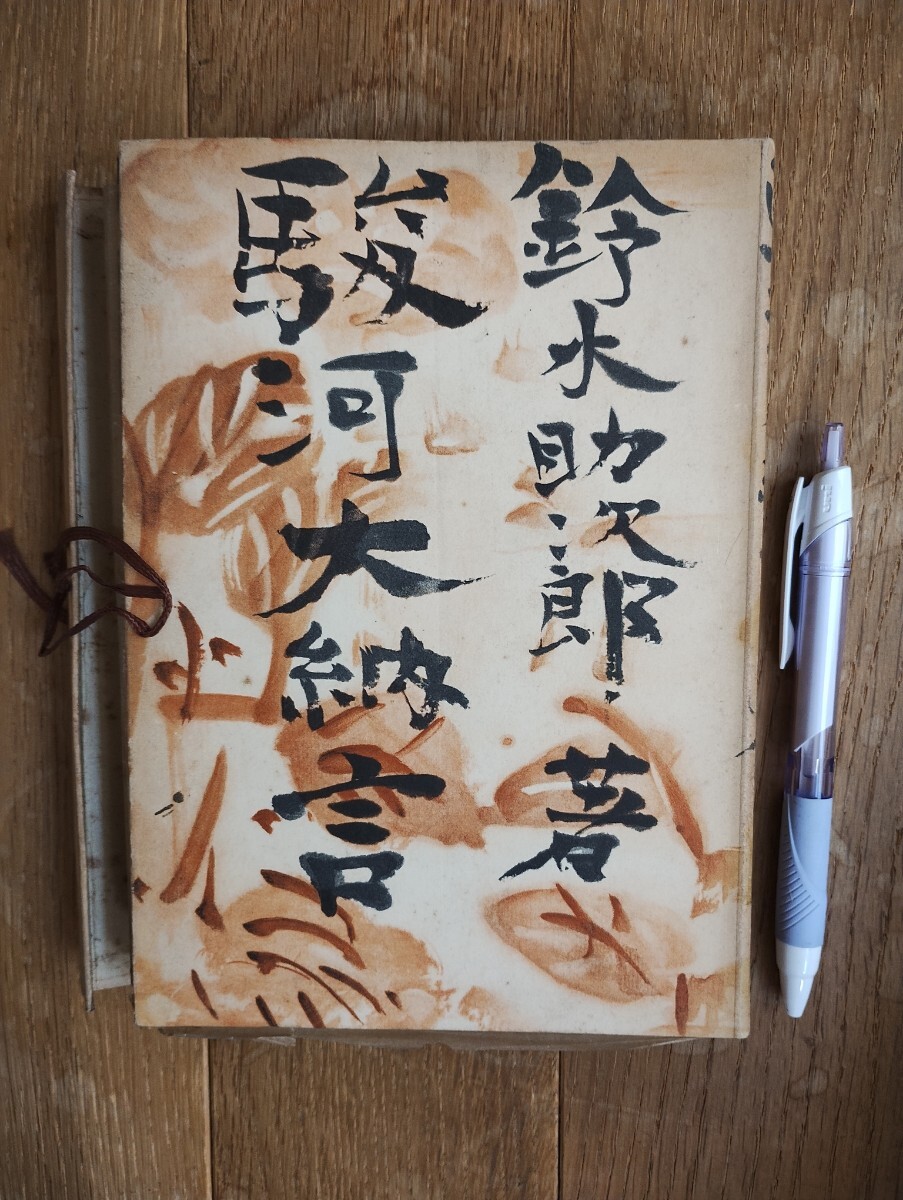 鈴木助次郎 著
駿河大納言